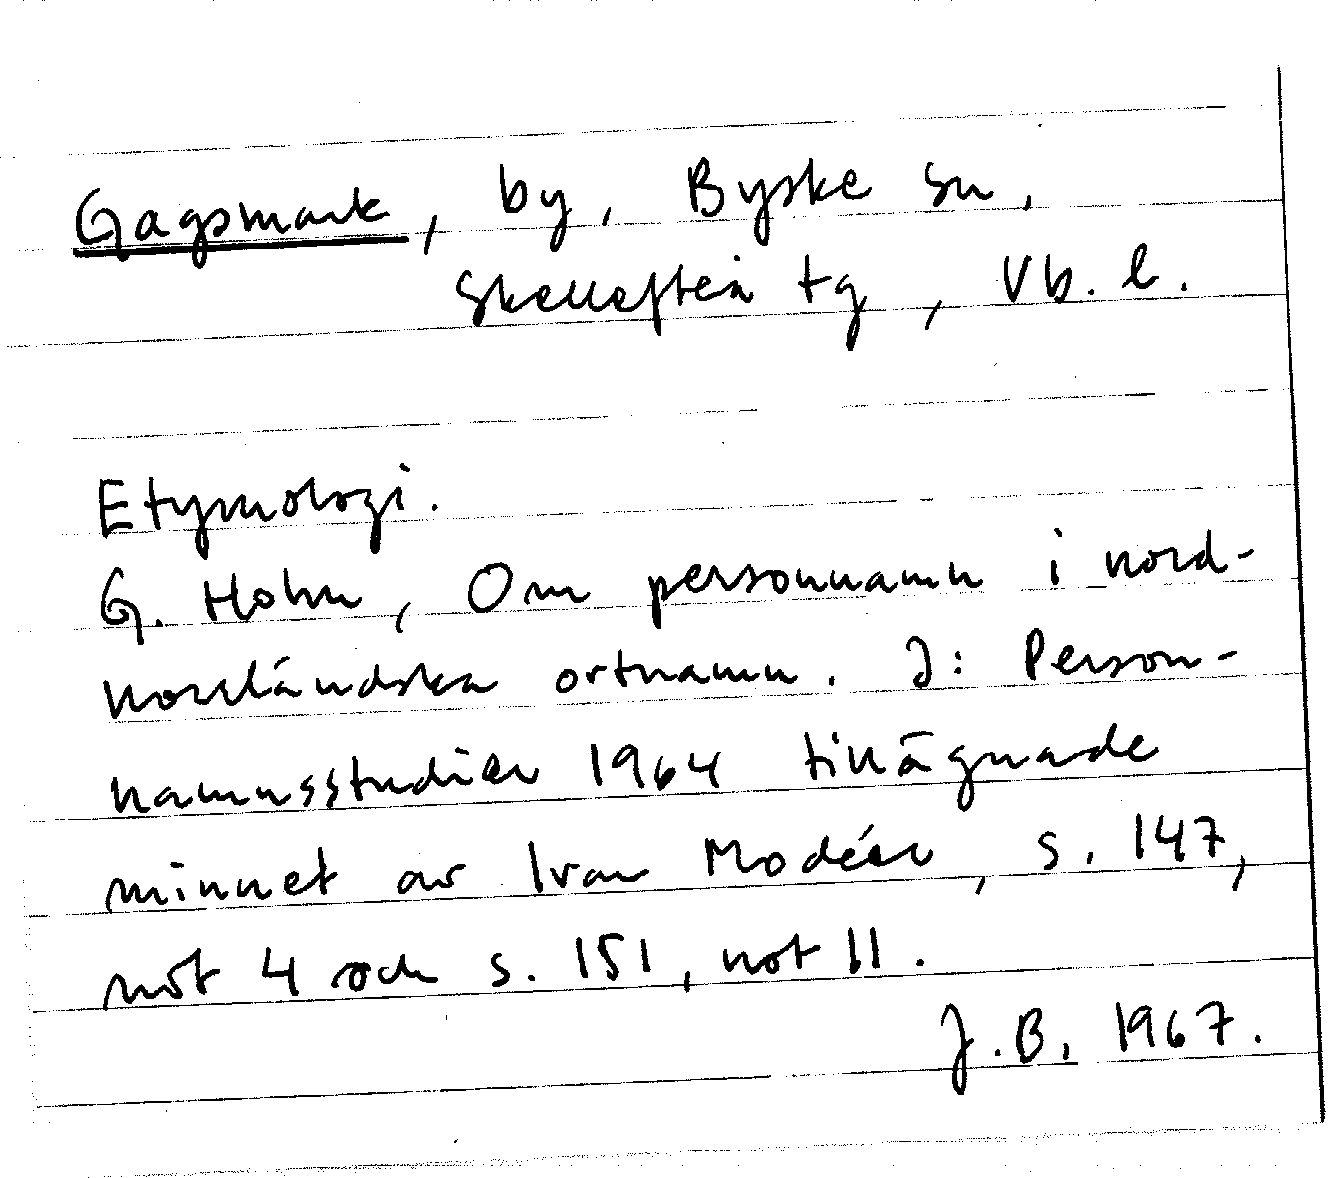 Gagsmark, by, Byske sn,
Skellefteå tg, Vb. l.
Etymologi.
G. Holm, Om personnamn i nord-
norrländska ortnamn. I: Person-
namnsstudier 1964 tillägnade
minnet av Ivar Modéer, s. 147,
not 4 och s. 151, not 11.
J.B. 1967.